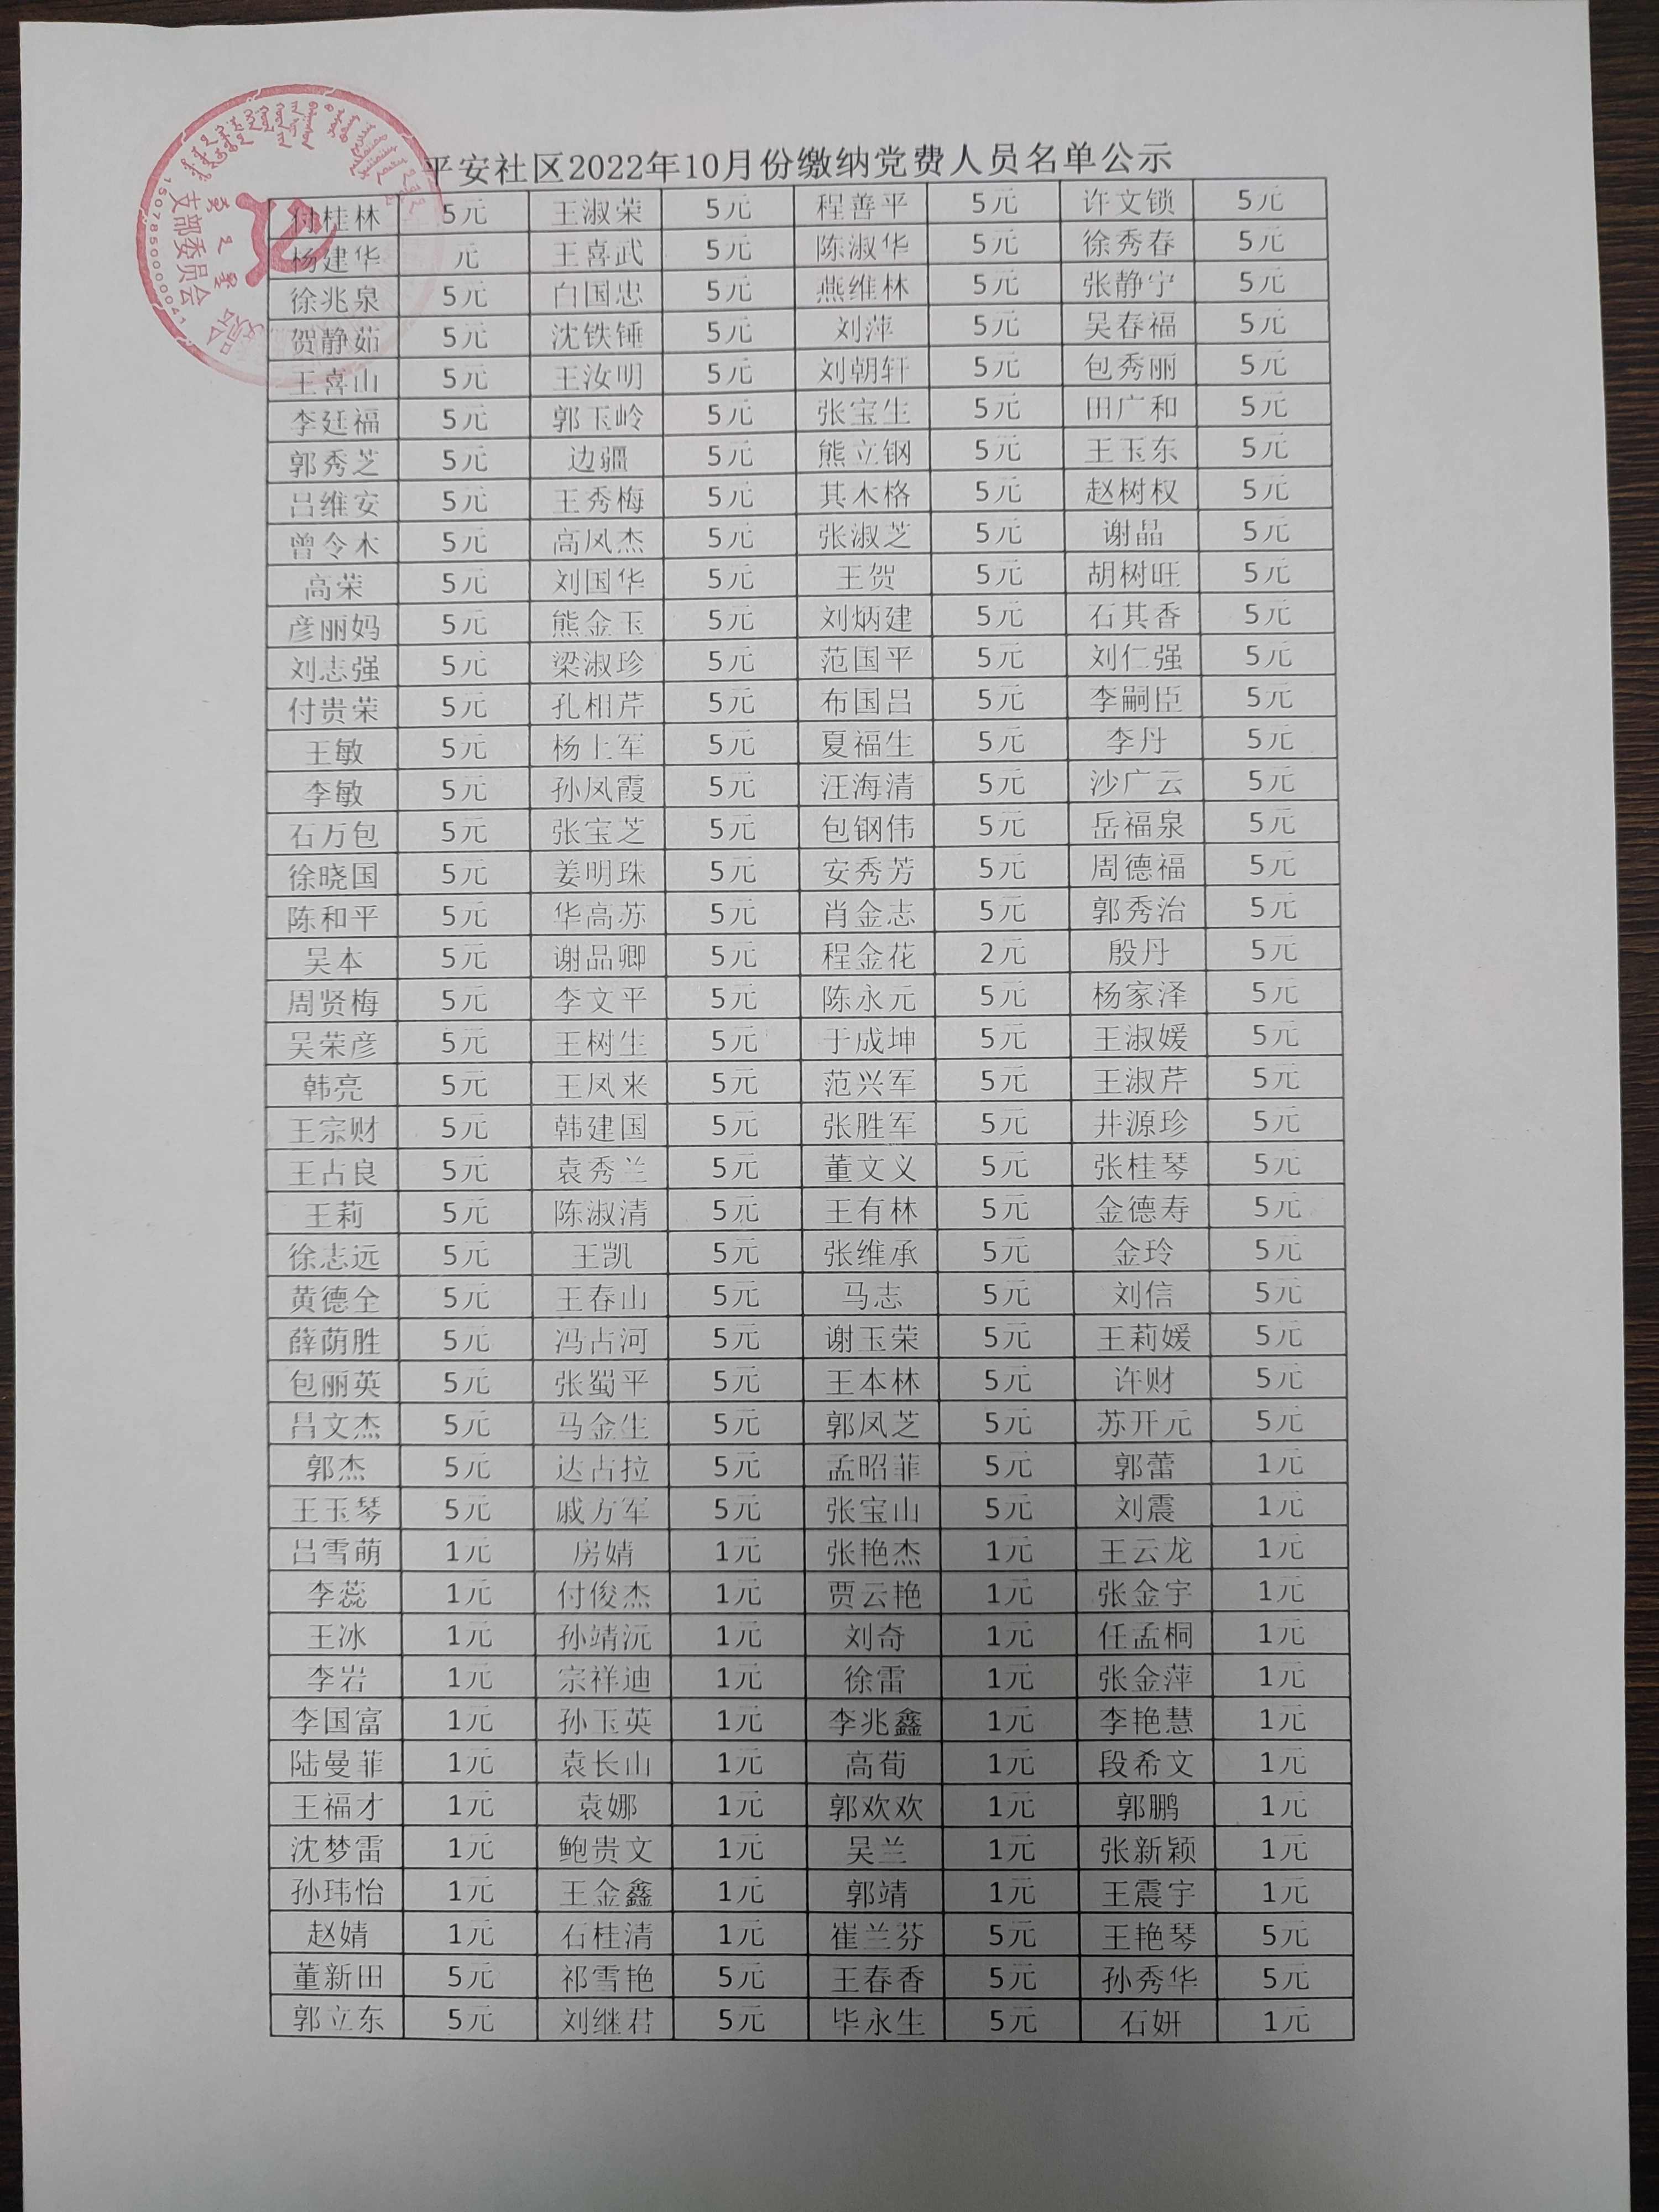 平安社区2022年10月份缴纳党费人员名单公示
付桂林 5元 王淑荣 5元 程善平 5元 许文锁 5元
杨建华 元 王喜武 5元 陈淑华 5元 徐秀春 5元
徐兆泉 5元 白国忠 5元 燕维林 5元 张静宁 5元
贺静茹 5元 沈铁锤 5元 刘萍 5元 吴春福 5元
王喜山 5元 王汝明 5元 刘朝轩 5元 包秀丽 5元
李廷福 5元 郭玉岭 5元 张宝生 5元 田广和 5元
郭秀芝 5元 边疆 5元 熊立钢 5元 王玉东 5元
吕维安 5元 王秀梅 5元 其木格 5元 赵树权 5元
曾令木 5元 高凤杰 5元 张淑芝 5元 谢晶 5元
高荣 5元 刘国华 5元 王贺 5元 胡树旺 5元
彦丽妈 5元 熊金玉 5元 刘炳建 5元 石其香 5元
刘志强 5元 梁淑珍 5元 范国平 5元 刘仁强 5元
付贵荣 5元 孔相芹 5元 布国吕 5元 李嗣臣 5元
王敏 5元 杨上军 5元 夏福生 5元 李丹 5元
李敏 5元 孙凤霞 5元 汪海清 5元 沙广云 5元
石万包 5元 张宝芝 5元 包钢伟 5元 岳福泉 5元
徐晓国 5元 姜明珠 5元 安秀芳 5元 周德福 5元
陈和平 5元 华高苏 5元 肖金志 5元 郭秀治 5元
吴本 5元 谢品卿 5元 程金花 2元 殷丹 5元
周贤梅 5元 李文平 5元 陈永元 5元 杨家泽 5元
吴荣彦 5元 王树生 5元 于成坤 5元 王淑媛 5元
韩亮 5元 王凤来 5元 范兴军 5元 王淑芹 5元
王宗财 5元 韩建国 5元 张胜军 5元 井源珍 5元
王占良 5元 袁秀兰 5元 董文义 5元 张桂琴 5元
王莉 5元 陈淑清 5元 王有林 5元 金德寿 5元
徐志远 5元 王凯 5元 张维承 5元 金玲 5元
黄德全 5元 王春山 5元 马志 5元 刘信 5元
薛荫胜 5元 冯占河 5元 谢玉荣 5元 王莉媛 5元
包丽英 5元 张蜀平 5元 王本林 5元 许财 5元
吕文杰 5元 马金生 5元 郭凤芝 5元 苏开元 5元
郭杰 5元 达占拉 5元 孟昭菲 5元 郭蕾 1元
王玉琴 5元 戚万军 5元 张宝山 5元 刘震 1元
吕雪萌 1元 房婧 1元 张艳杰 1元 王云龙 1元
李蕊 1元 付俊杰 1元 贾云艳 1元 张金宇 1元
王冰 1元 孙靖沅 1元 刘奇 1元 任孟桐 1元
李岩 1元 宗祥迪 1元 徐雷 1元 张金萍 1元
李国富 1元 孙玉英 1元 李兆鑫 1元 李艳慧 1元
陆曼菲 1元 袁长山 1元 高荀 1元 段希文 1元
王福才 1元 袁娜 1元 郭欢欢 1元 郭鹏 1元
沈梦雷 1元 鲍贵文 1元 吴兰 1元 张新颖 1元
孙玮怡 1元 王金鑫 1元 郭靖 1元 王震宇 1元
赵婧 1元 石桂清 1元 崔兰芬 5元 王艳琴 5元
董新田 5元 祁雪艳 5元 王春香 5元 孙秀华 5元
郭立东 5元 刘继君 5元 毕永生 5元 石妍 1元
支部委员会
1507850000041